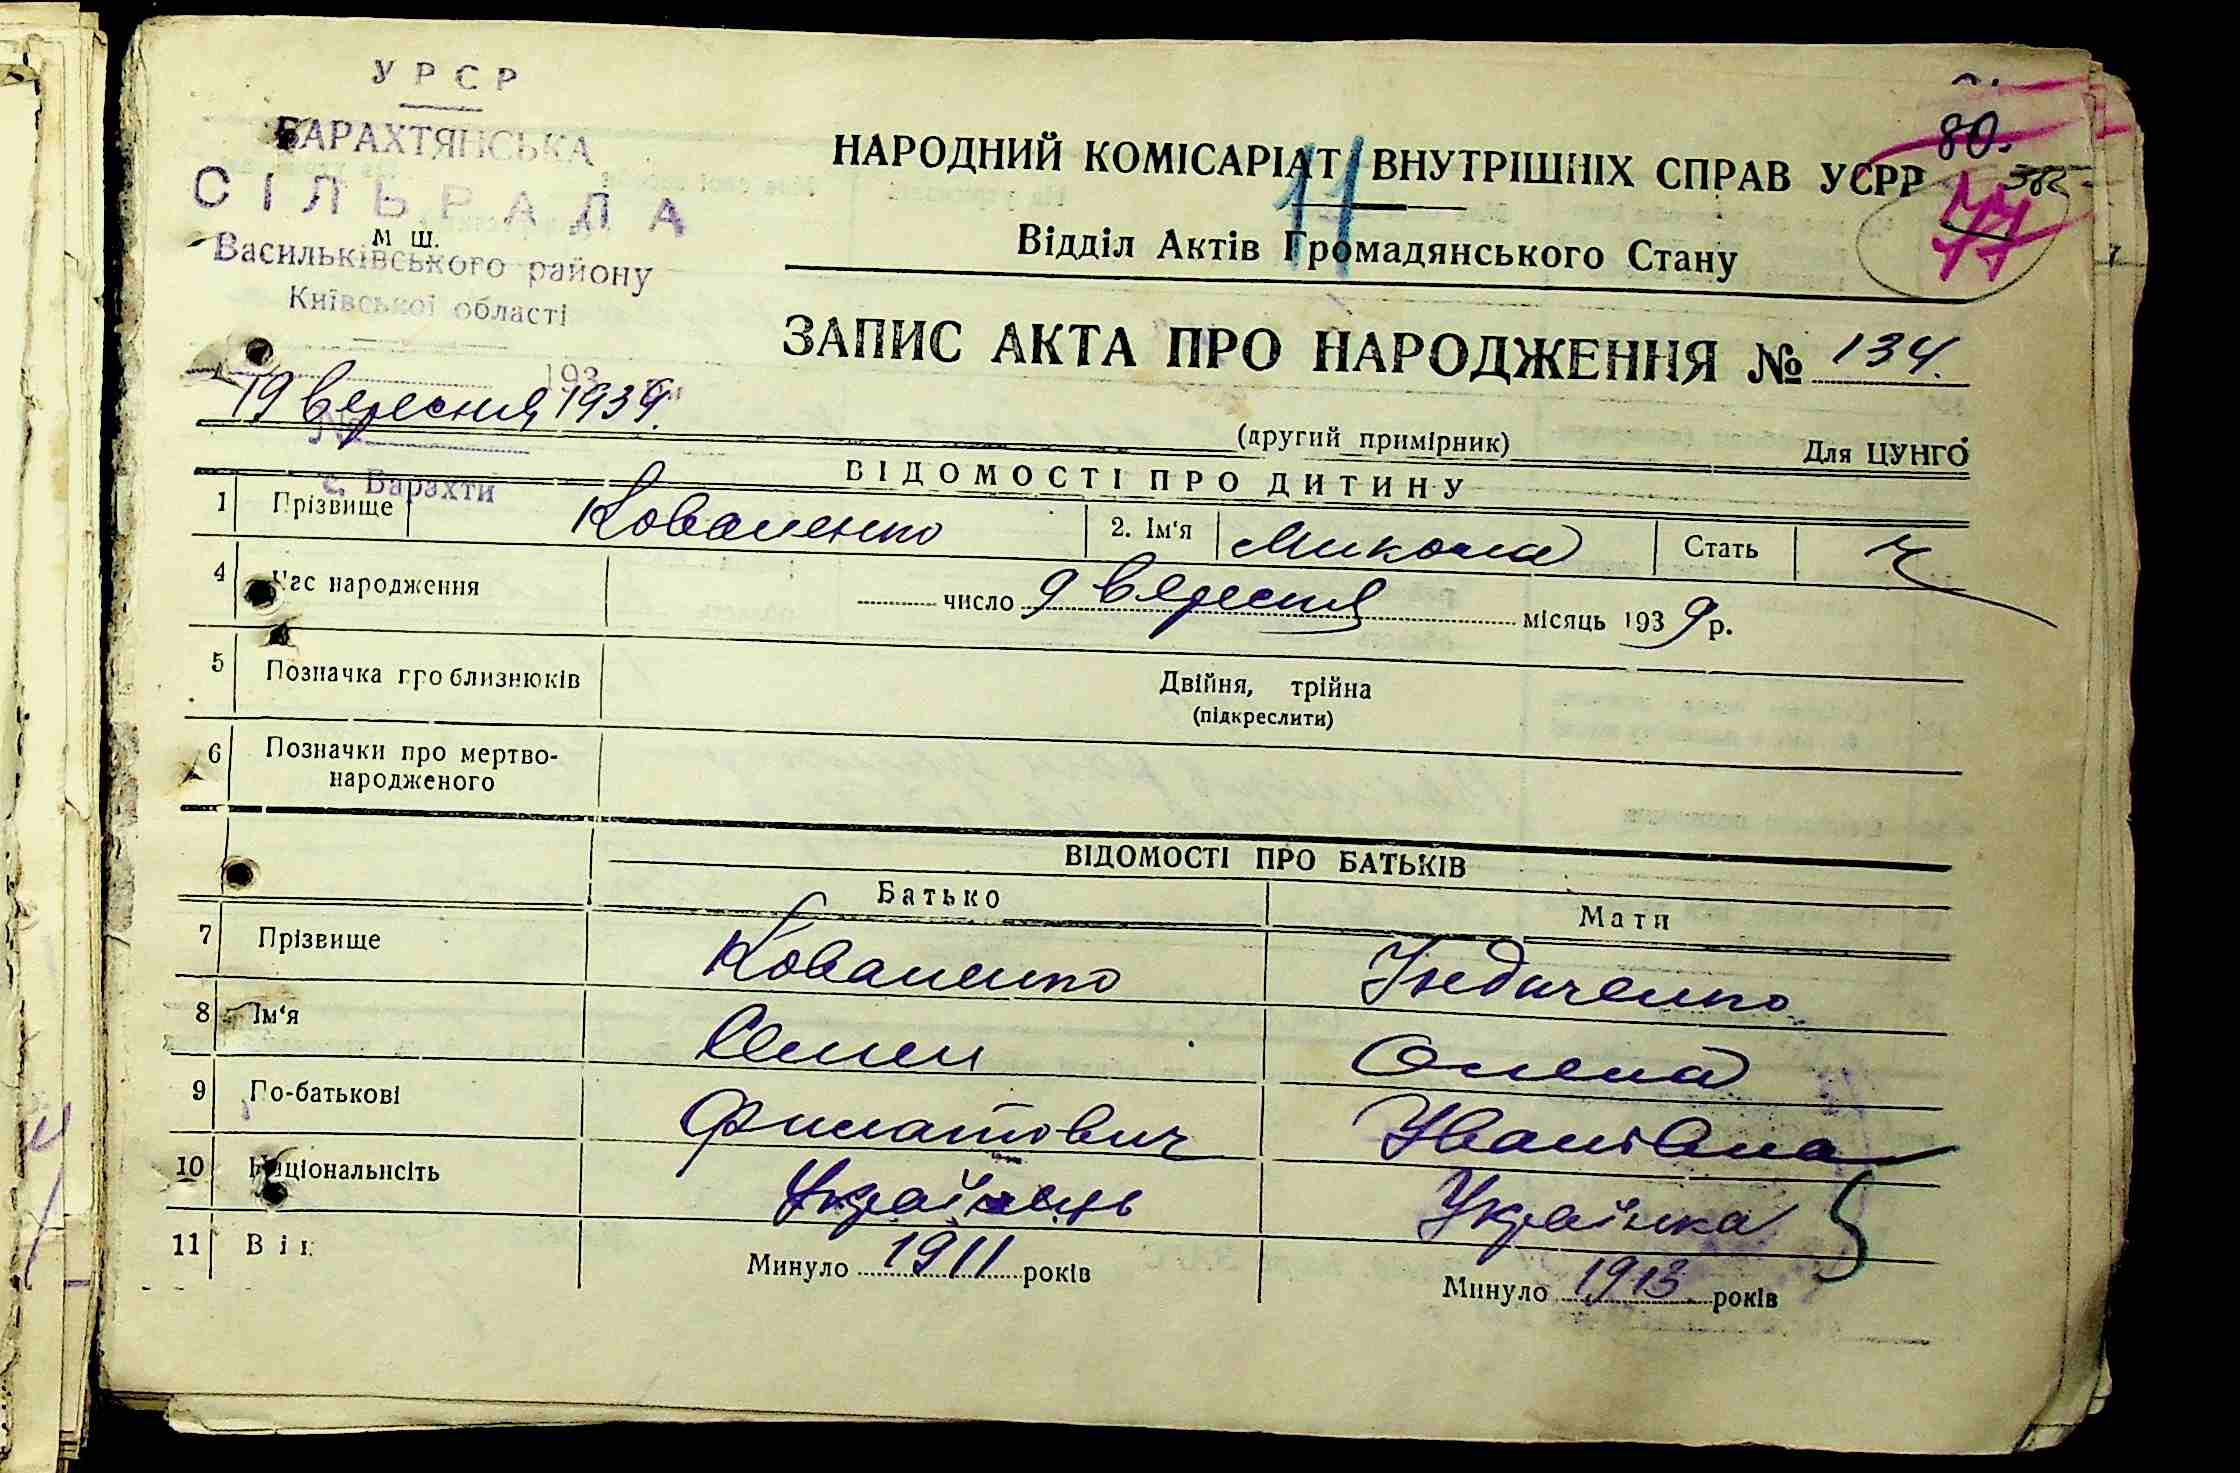 УРСР
БАРАХТЯНСЬКА
СІЛЬРАДА
М Ш.
Васильківського району
Київської області
193
19 вересня 1939.
№
с. Барахти
80.
382
77
11
НАРОДНИЙ КОМІСАРІАТ ВНУТРІШНІХ СПРАВ УСРР
Відділ Актів Громадянського Стану
ЗАПИС АКТА ПРО НАРОДЖЕННЯ № 134.
(другий примірник) Для ЦУНГО
ВІДОМОСТІ ПРО ДИТИНУ
1 Прізвище Коваленко 2. Ім'я Микола Стать Ч
4 Час народження число 9 вересня місяць 1939 р.
5 Позначка про близнюків Двійня, трійна
(підкреслити)
6 Позначки про мертво-
народженого
ВІДОМОСТІ ПРО БАТЬКІВ
Батько Мати
7 Прізвище Коваленко Індиченко
8 Ім'я Семен Олена
9 По-батькові Филатович Іванівна
10 Національнсіть Українець Українка
11 Вік Минуло 1911 років Минуло 1913 років